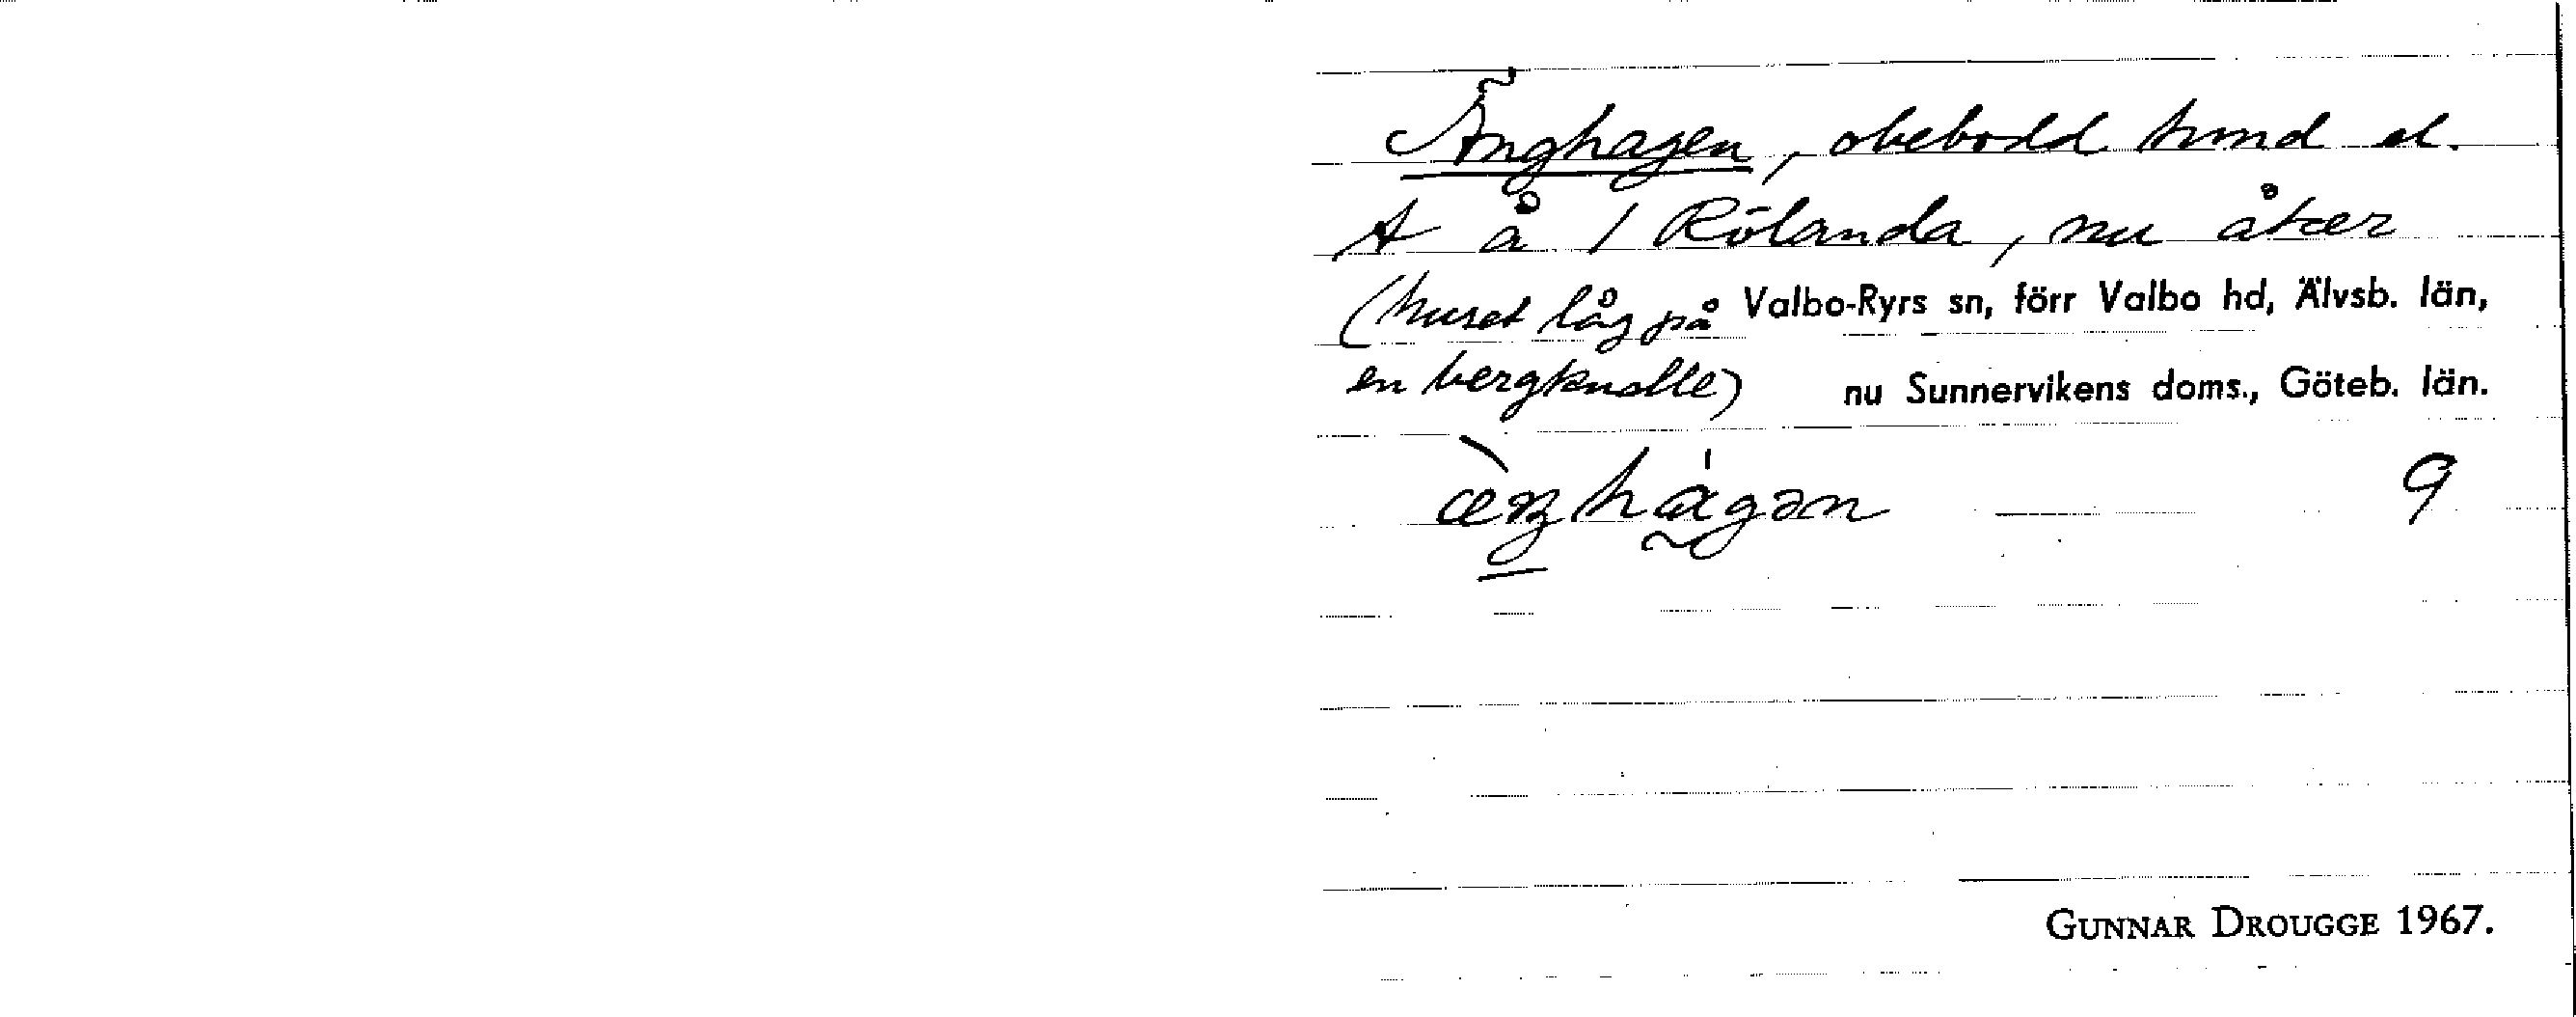 Änghagen, obebodd hmd el.
t å 1 Rölanda, nu åker
(huset låg på Valbo-Ryrs sn, förr Valbo hd, Älvsb. län,
en bergknalle) nu Sunnervikens doms., Göteb. län.
æŋhagən 9
GUNNAR DROUGGE 1967.